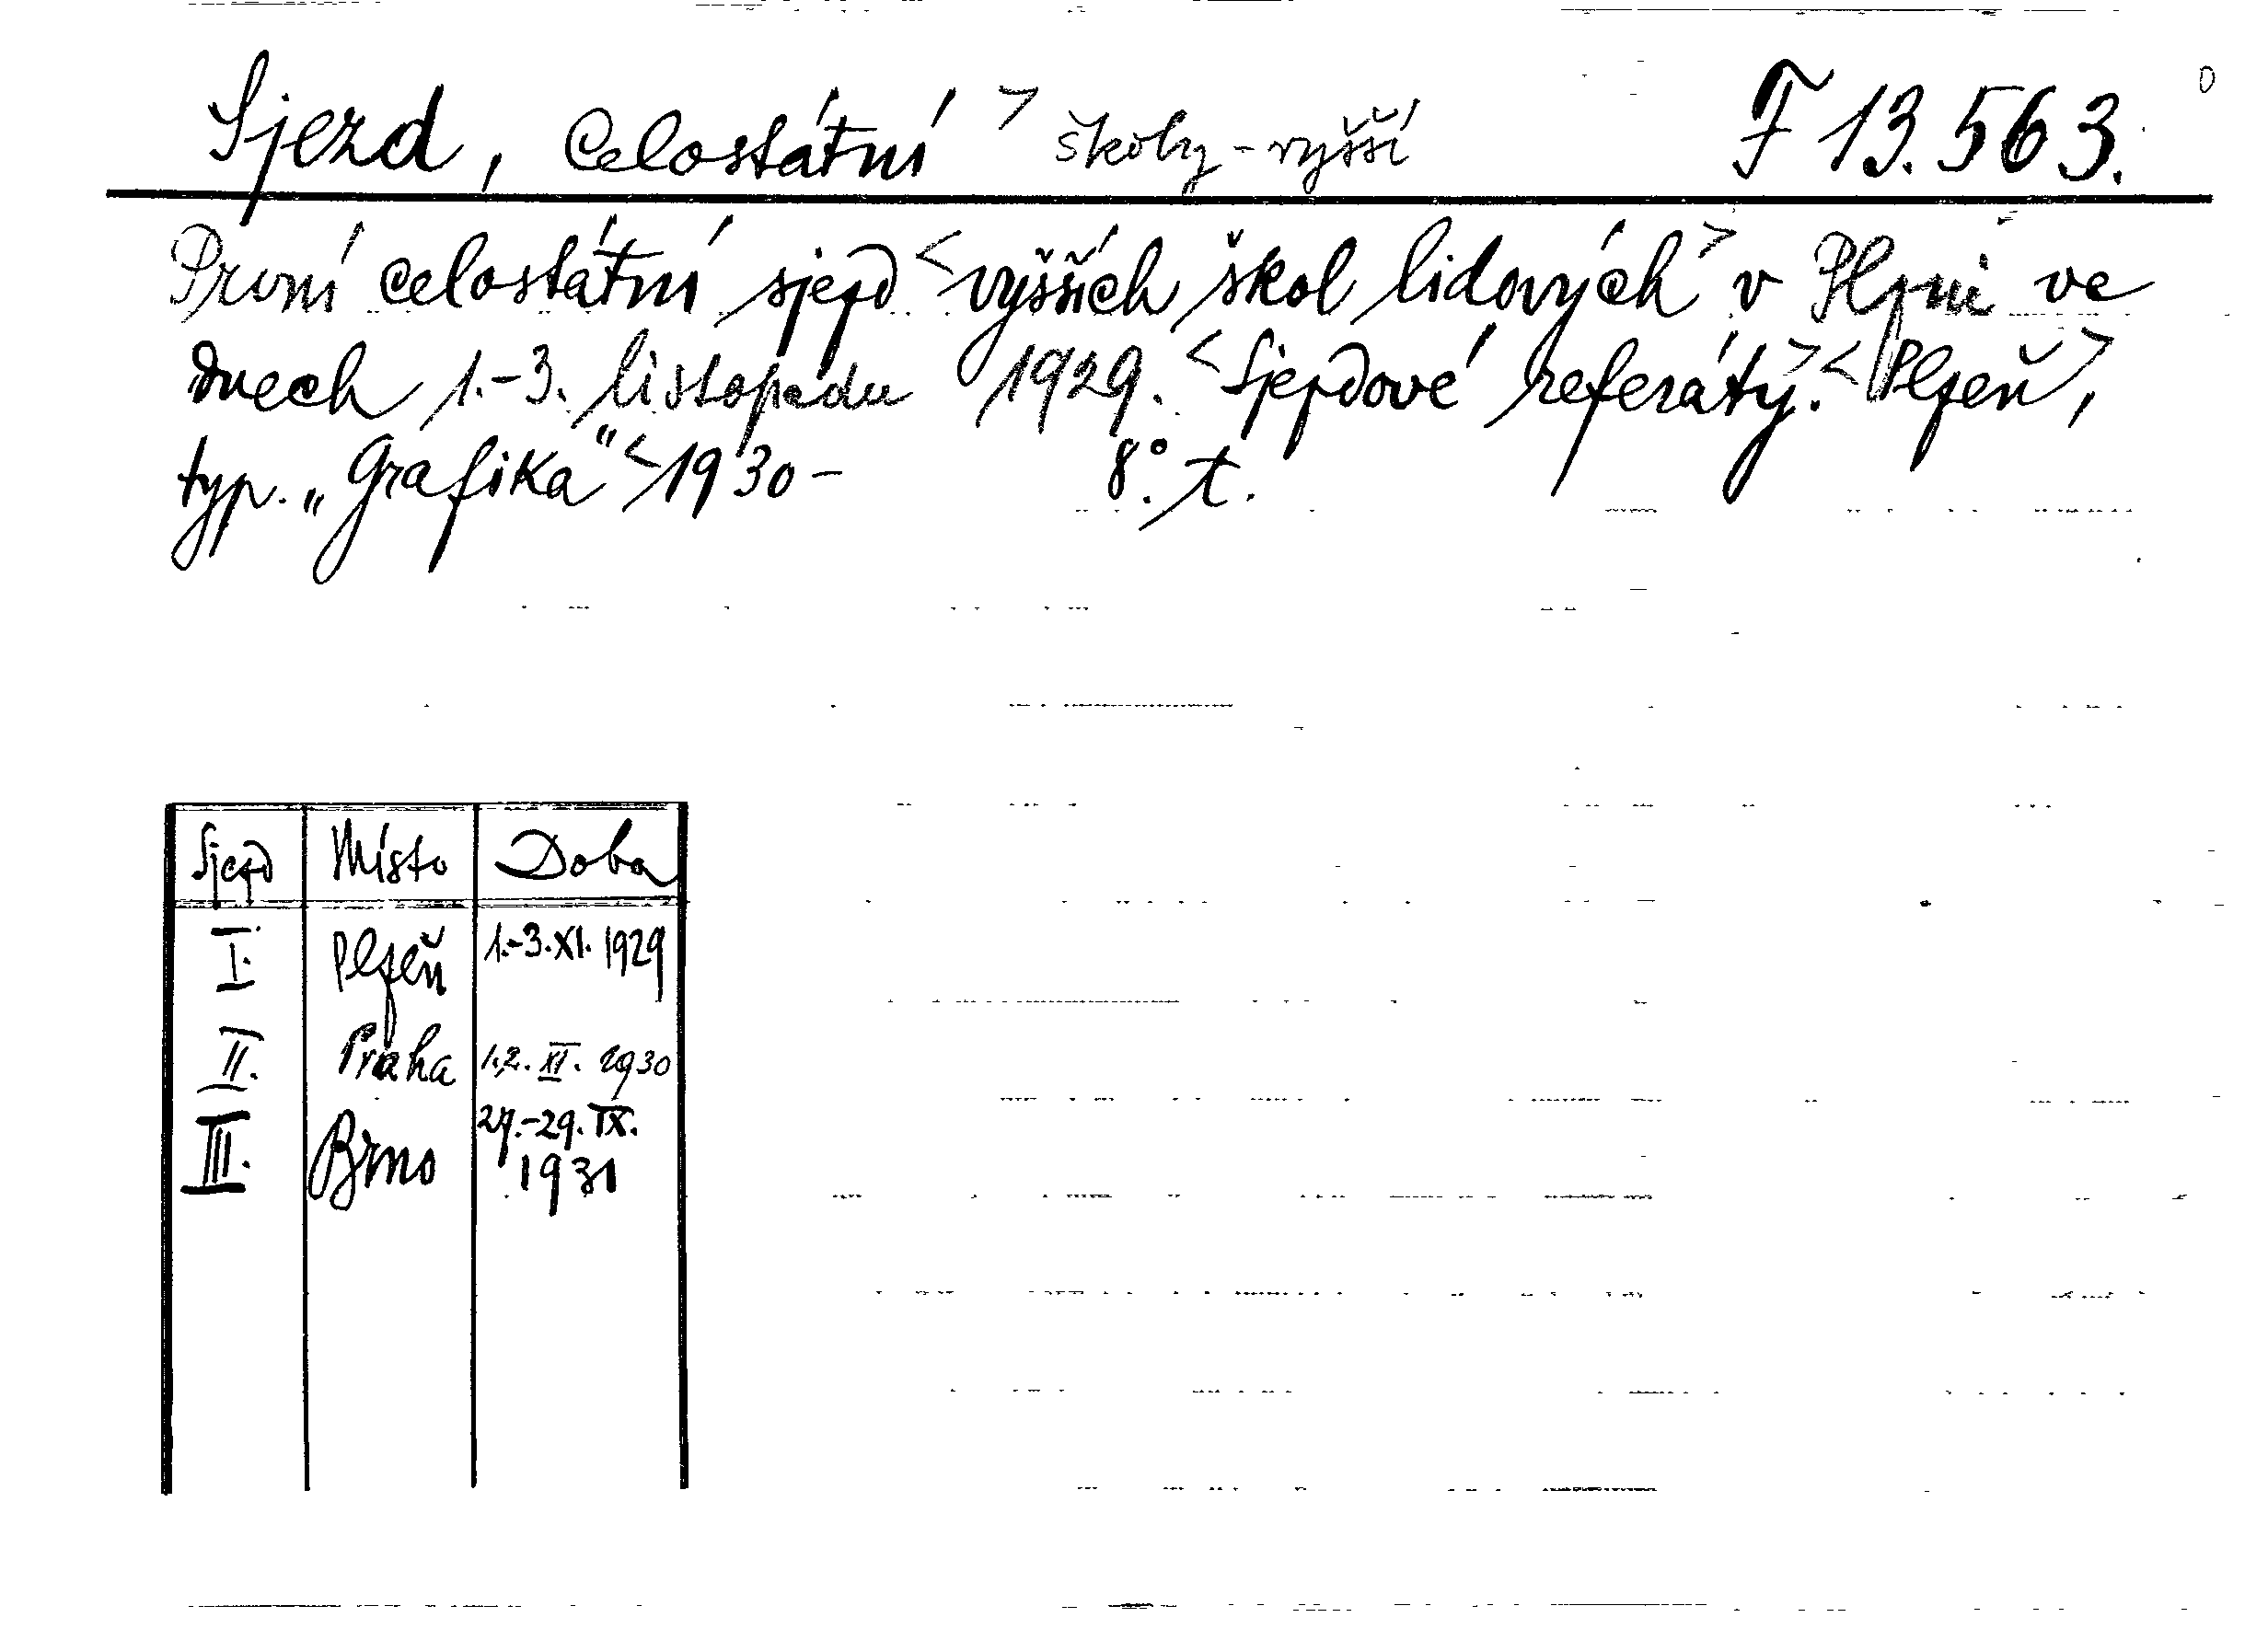 Sjezd, Celostátní > školy-vyšší F 13.563.
První celostátní sjezd <vyšších škol lidových> v Plzni ve
dnech 1.-3. listopadu 1929. <Sjezdové referáty.> <Plzeň>,
typ. „Grafika“ <1930- 8°. t.
Sjezd Místo Doba
I. Plzeň 1.-3.XI. 1929
II. Praha 1.2. XI. 1930
III. Brno 27.-29. IX.
1931